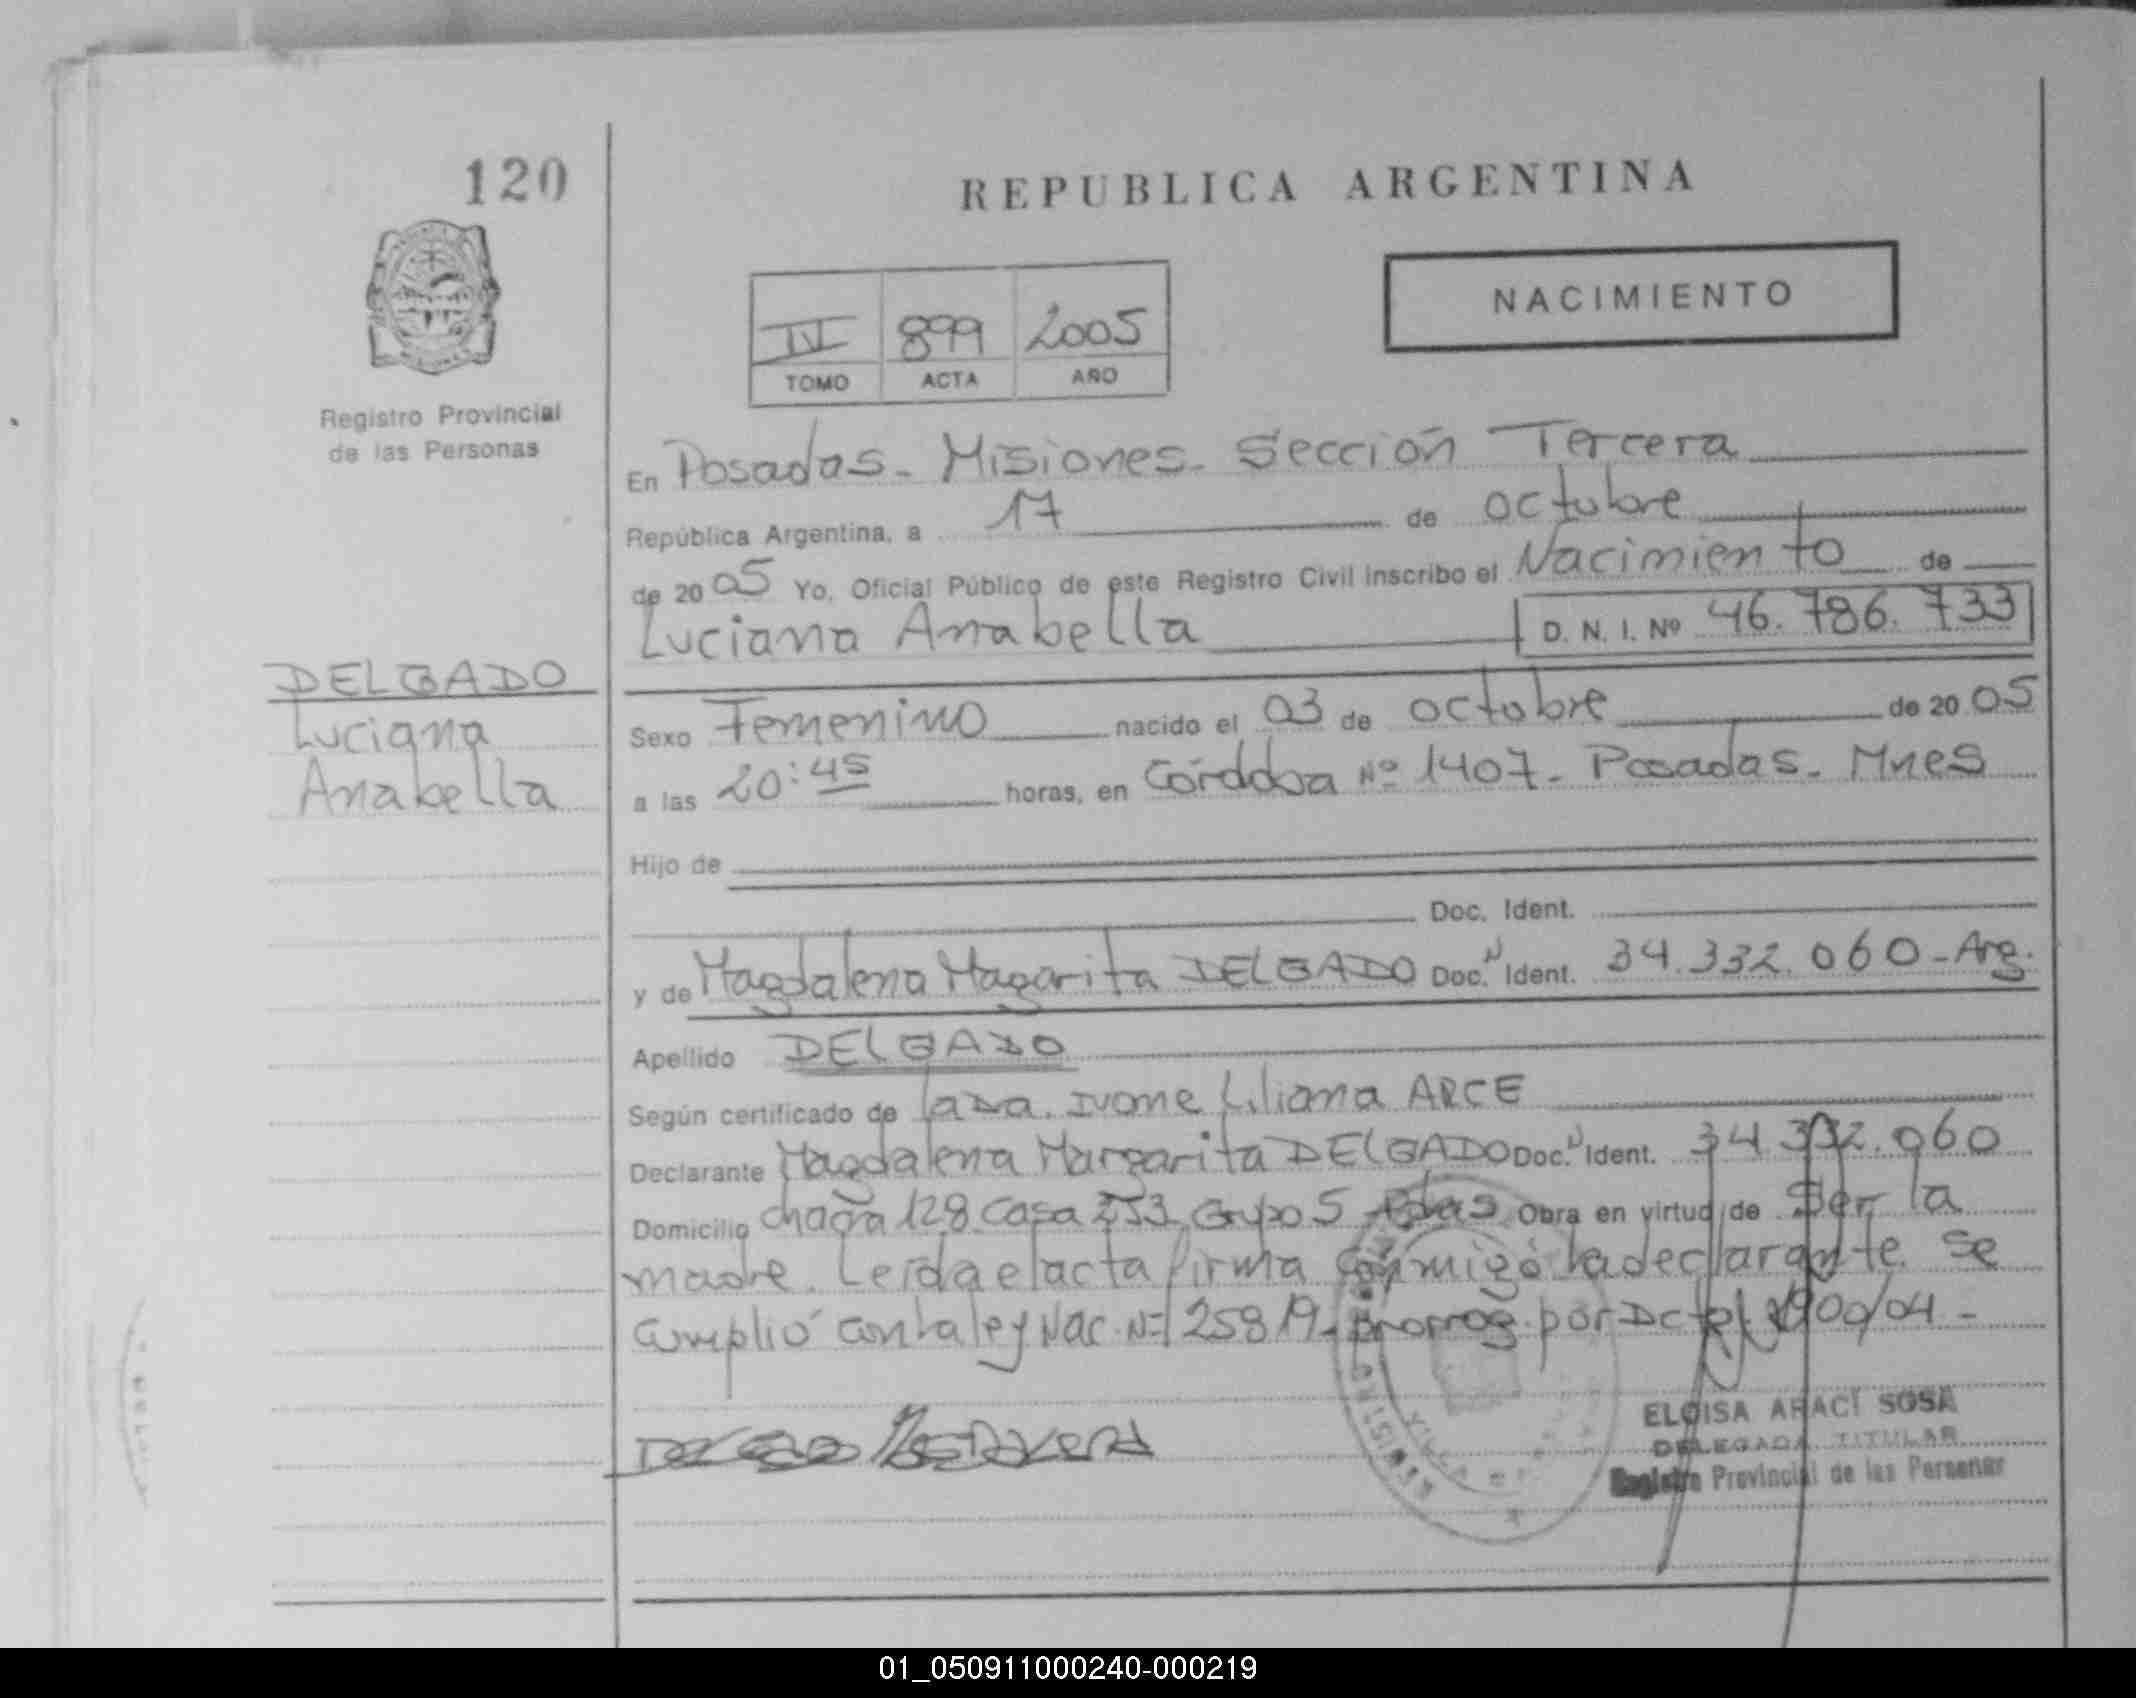 120
REPUBLICA ARGENTINA
NACIMIENTO
IV 899 2005
TOMO ACTA AÑO
Registro Provincial
de las Personas
En Posadas - Misiones - Sección Tercera
República Argentina, a 17 de octubre
de 2005 Yo, Oficial Público de este Registro Civil inscribo el Nacimiento de
Luciana Anabella D. N. I. Nº 46.786.733
DELGADO
Luciana
Anabella
Sexo Femenino nacido el 03 de octubre de 2005
a las 20:45 horas, en Córdoba Nº 1407 - Posadas - Mnes
Hijo de
Doc. Ident.
y de Magdalena Magarita DELGADO Doc. N Ident. 34.332.060 - Arg.
Apellido DELGADO
Según certificado de la Dra. Ivone Liliana ARCE
Declarante Magdalena Margarita DELGADO Doc. N Ident. 34.332.060
Domicilio chacra 128 Casa 253 Grupo 5 Pdas Obra en virtud de Ser la
madre. Leída el acta firma conmigo la declarante. Se
cumplió con la ley Nac. Nº 25819 - prorrog. por Dcto 1900/04 -
DELGADO MAGDALENA
ELOISA ARACI SOSA
DELEGADA TITULAR
Registro Provincial de las Personas
01_050911000240-000219